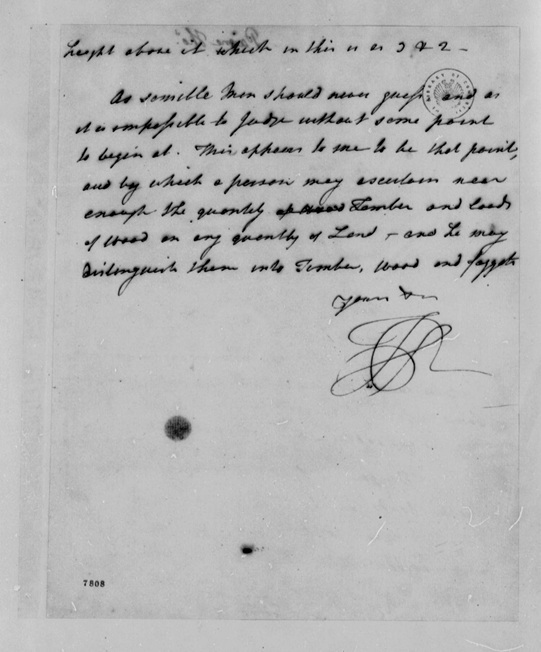 height above it which in this is as 3 & 2 –
As sensible Men should never guess, and as
it is impossible to Judge without some point
to begin at. This appears to me to be that point,
and by which a person may ascertain near
enough the quantity of Timber and loads
of Wood on any quantity of Land – and he may
distinguish them into Timber, Wood and faggots
Yours &c
7808